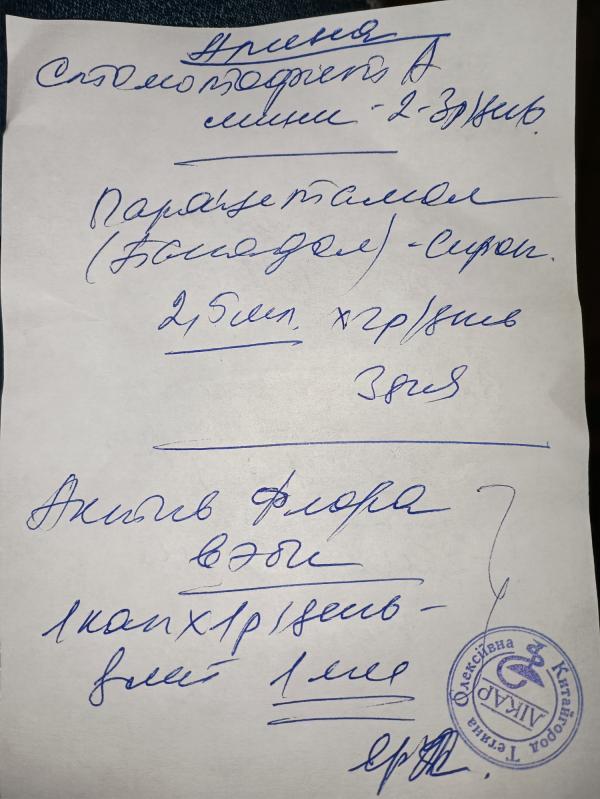 Арина
Стоматофит А
мини - 2-3р/день.
Парацетамол
(Панадол) - сироп.
2,5мл. х 2р/день
3 дня
Актив Флора
Бэби
1кап х 1р/день -
1 мл
Китайгород Тетяна Олексіївна
ЛІКАР